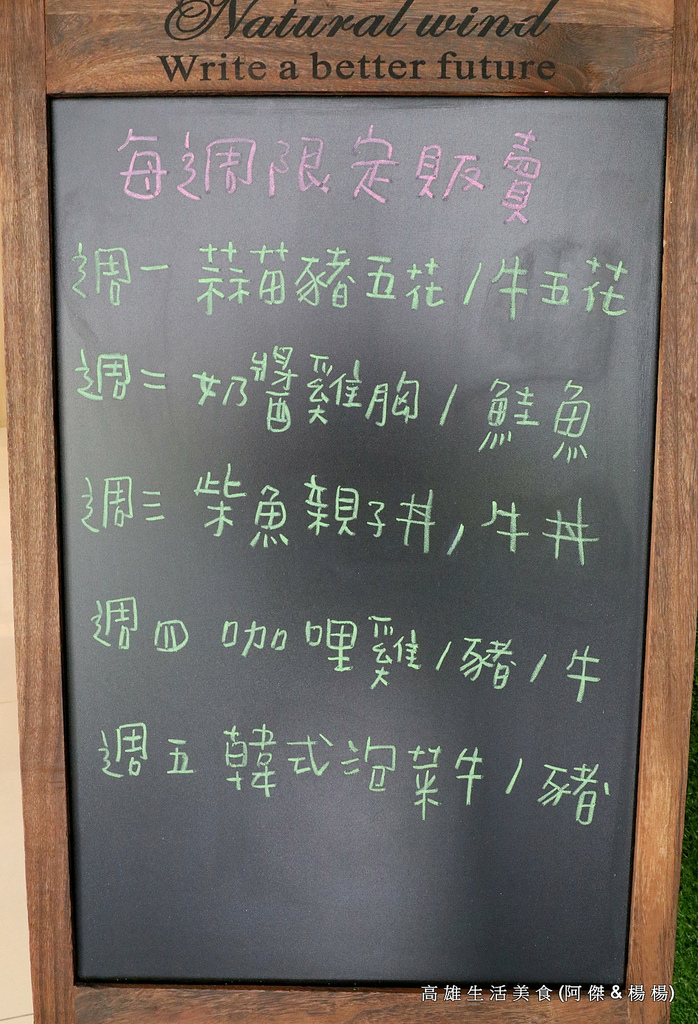 Natural wind
Write a better future
每週限定販賣
週一 蒜苗豬五花/牛五花
週二 奶醬雞胸/鮭魚
週三 柴魚親子丼/牛丼
週四 咖哩雞/豬/牛
週五 韓式泡菜牛/豬
高雄生活美食(阿傑&楊楊)